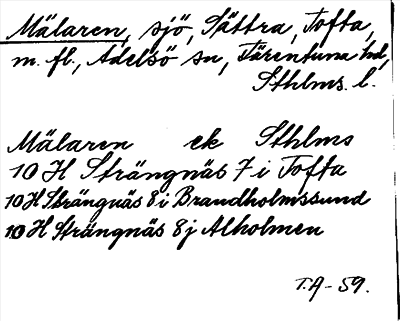 Mälaren, sjö, Sättra, Tofta,
m. fl., Adelsö sn, Färentuna hd,
Sthlms. l.
Mälaren ek Sthlms
10 H Strängnäs 7 i Tofta
10 H Strängnäs 8 i Brandholmssund
10 H Strängnäs 8 j Alholmen
T.A-59.